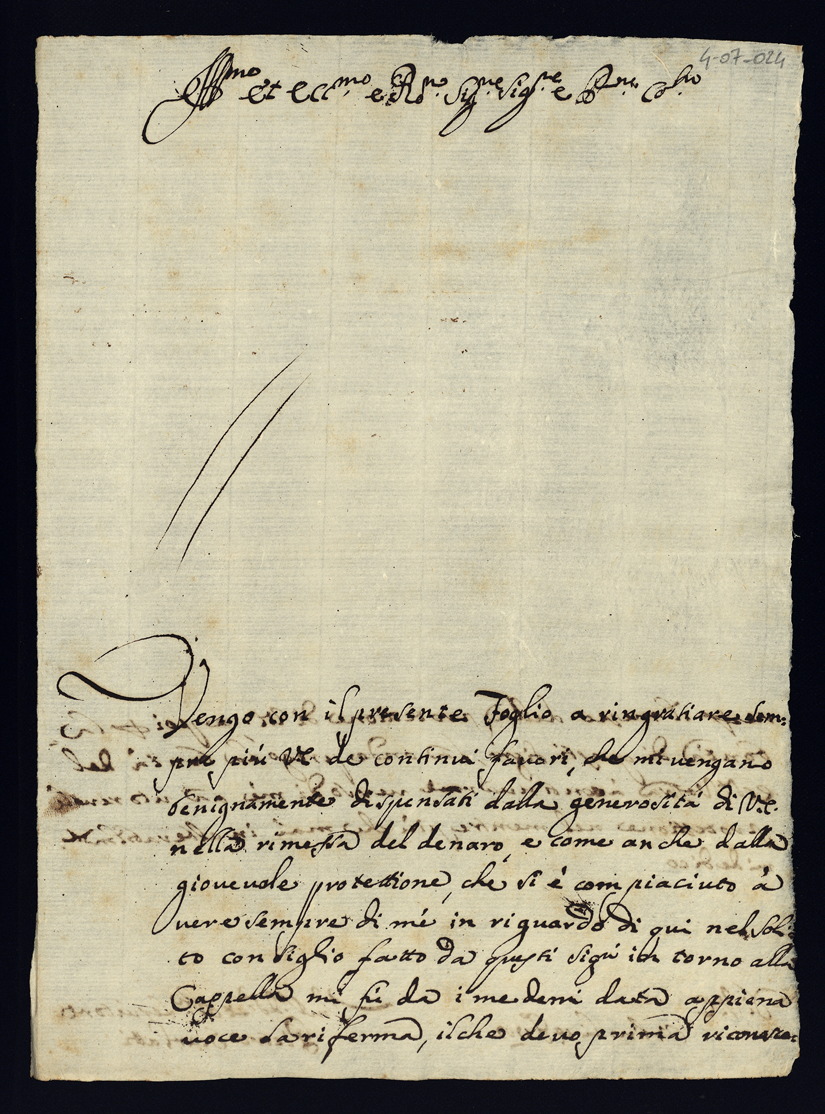 4-07-024
Ill.mo et ecc.mo e R.mo Sig.re Sig.re e P.ne Co.lmo
Vengo con il presente Foglio a ringratiare sem:
pre più V.E. de continui favori, che mi vengano
benignamente dispensati dalla generosità di V.E.
nella rimessa del denaro, e come anche dalla
giovevole protettione, che si è compiaciuto à
vere sempre di mè in riguardo di qui nel soli:
to consiglio fatto da questi Sig.ri in torno alla
Cappella mi fù da i medemi data appiena
voce la riferma, il che devo prima riconosce: